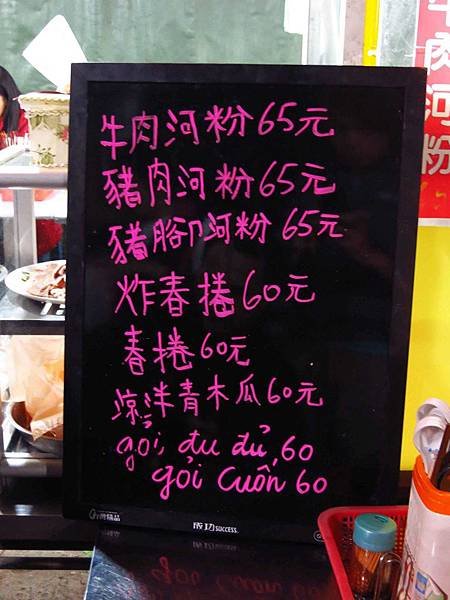 牛肉河粉65元
豬肉河粉65元
豬腳河粉 65元
炸春捲60元
春捲60元
涼洋青木瓜60元
gỏi đu đủ 60
gỏi cuốn 60
成功 SUCCESS
牛肉河粉